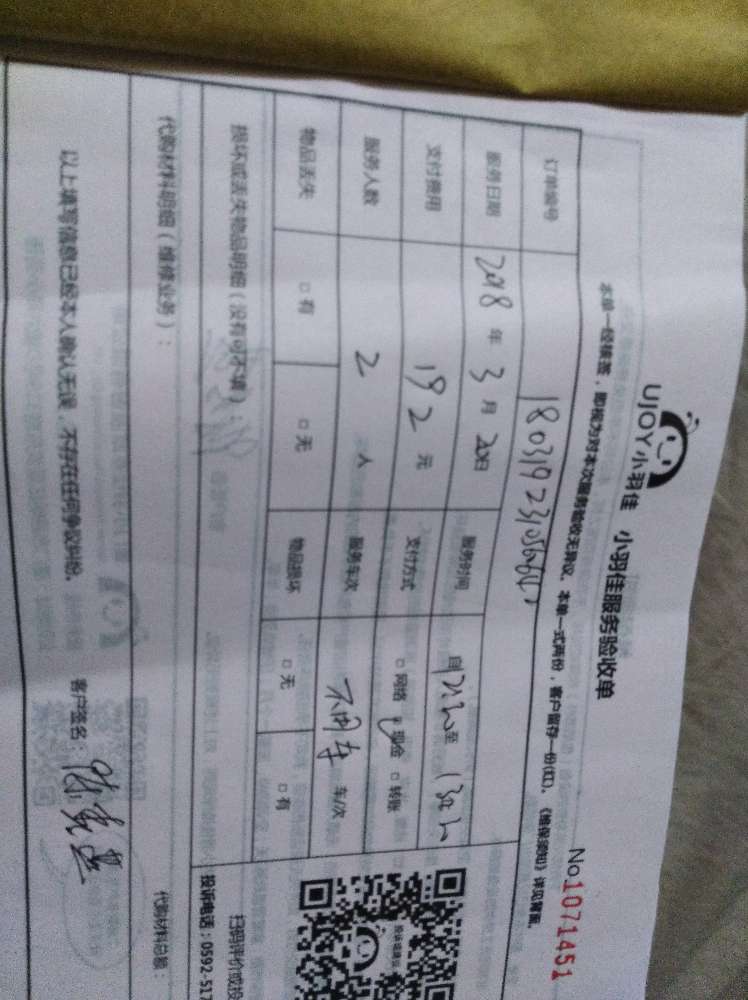 UJOY小羽佳 小羽佳服务验收单
No.1071451
本单一经核签，即视为对本次服务验收无异议。本单一式两份，客户留存一份(红)。《维保须知》详见背面。
订单编号
服务日期 2018 年 3 月 20日 服务时间 自 至
支付费用 192 元 支付方式 □网络 现金 □转账
服务人数 2 人 服务车次 不用车 车/次
物品丢失 □有 □无 物品损坏 □无 □有
损坏或丢失物品明细（没有可不填）：
扫码评价或投
投诉电话：0592-517
代购材料明细（维修业务）：
代购材料总额：
以上填写信息已经本人确认无误，不存在任何争议纠纷。 客户签名：